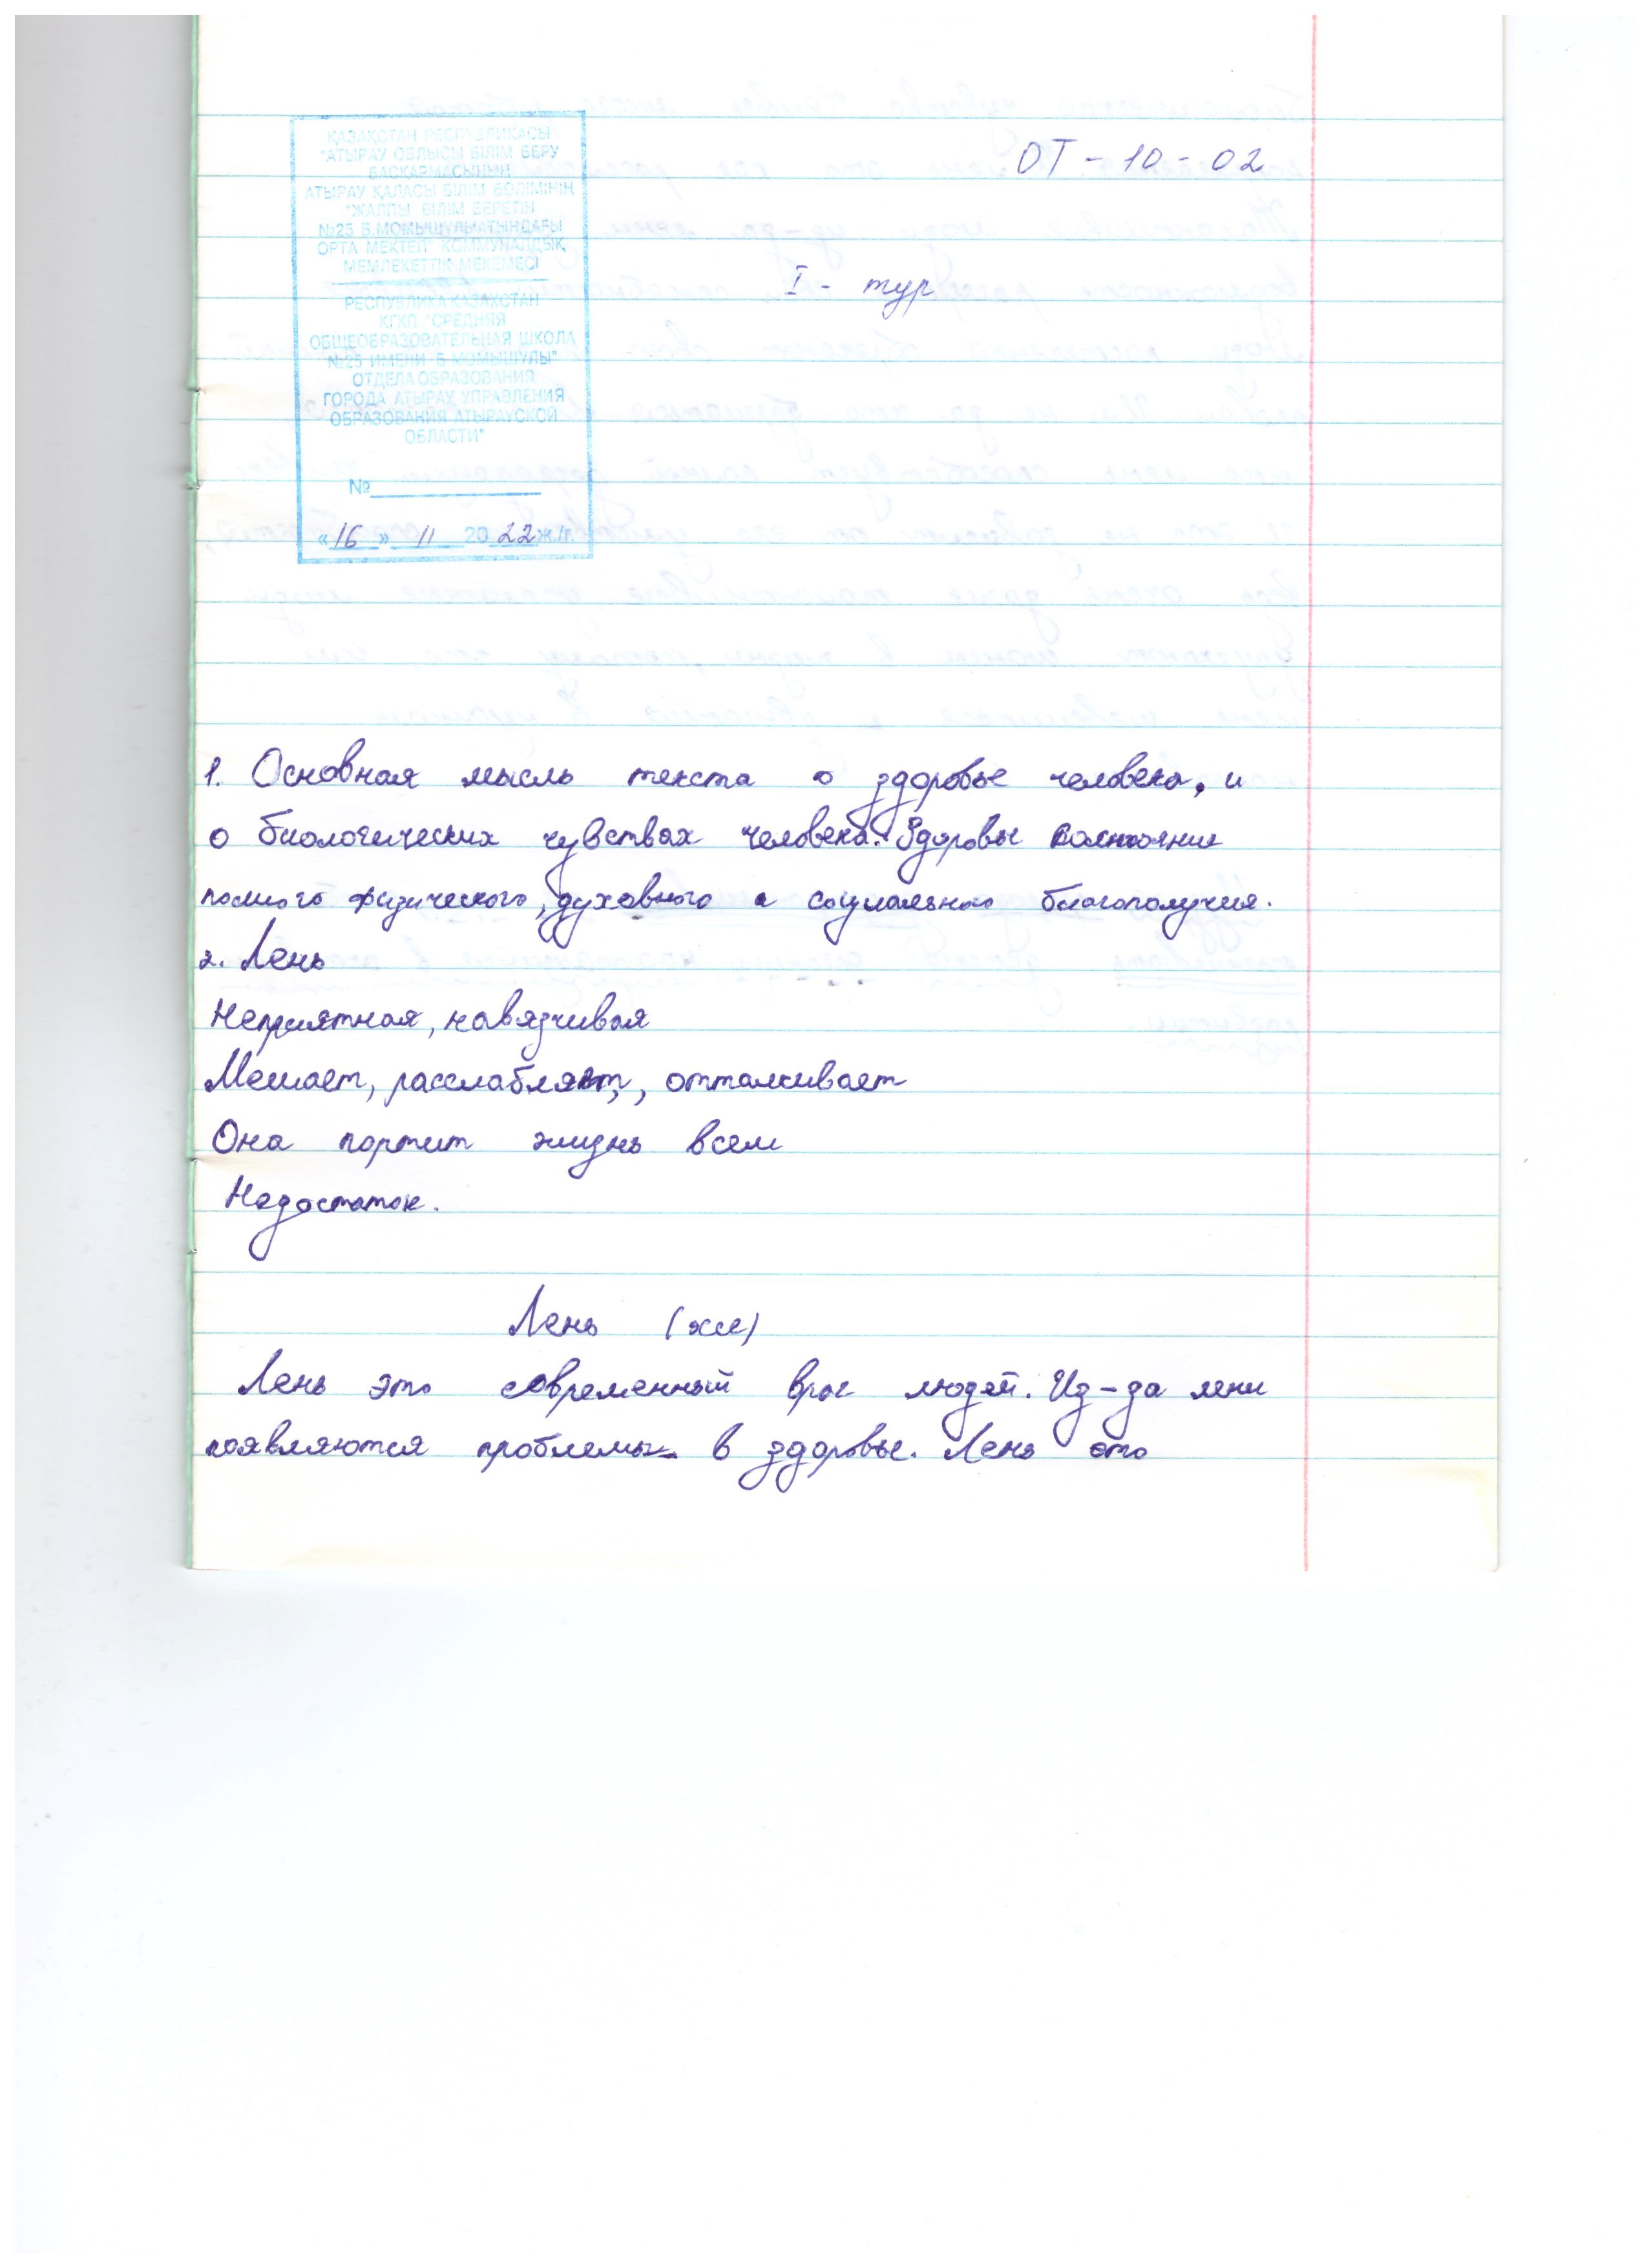 ҚАЗАҚСТАН РЕСПУБЛИКАСЫ
"АТЫРАУ ОБЛЫСЫ БІЛІМ БЕРУ
БАСҚАРМАСЫНЫҢ
АТЫРАУ ҚАЛАСЫ БІЛІМ БӨЛІМІНІҢ
"ЖАЛПЫ БІЛІМ БЕРЕТІН
№25 Б.МОМЫШҰЛЫ АТЫНДАҒЫ
ОРТА МЕКТЕП" КОММУНАЛДЫҚ
МЕМЛЕКЕТТІК МЕКЕМЕСІ
РЕСПУБЛИКА КАЗАХСТАН
КГКП "СРЕДНЯЯ
ОБЩЕОБРАЗОВАТЕЛЬНАЯ ШКОЛА
№25 ИМЕНИ Б МОМЫШУЛЫ"
ОТДЕЛА ОБРАЗОВАНИЯ
ГОРОДА АТЫРАУ УПРАВЛЕНИЯ
ОБРАЗОВАНИЯ АТЫРАУСКОЙ
ОБЛАСТИ"
№
«16» 11 2022 ж./г.
ОТ - 10 - 02
I - тур
1. Основная мысль текста о здоровье человека, и
о биологических чувствах человека. Здоровье состояние
полного физического, духовного и социального благополучия.
2. Лень
Неприятная, навязчивая
Мешает, расслабляет, отталкивает
Она портит жизнь всем
Недостаток.
Лень (эссе)
Лень это современный враг людей. Из-за лени
появляются проблемы в здоровье. Лень это